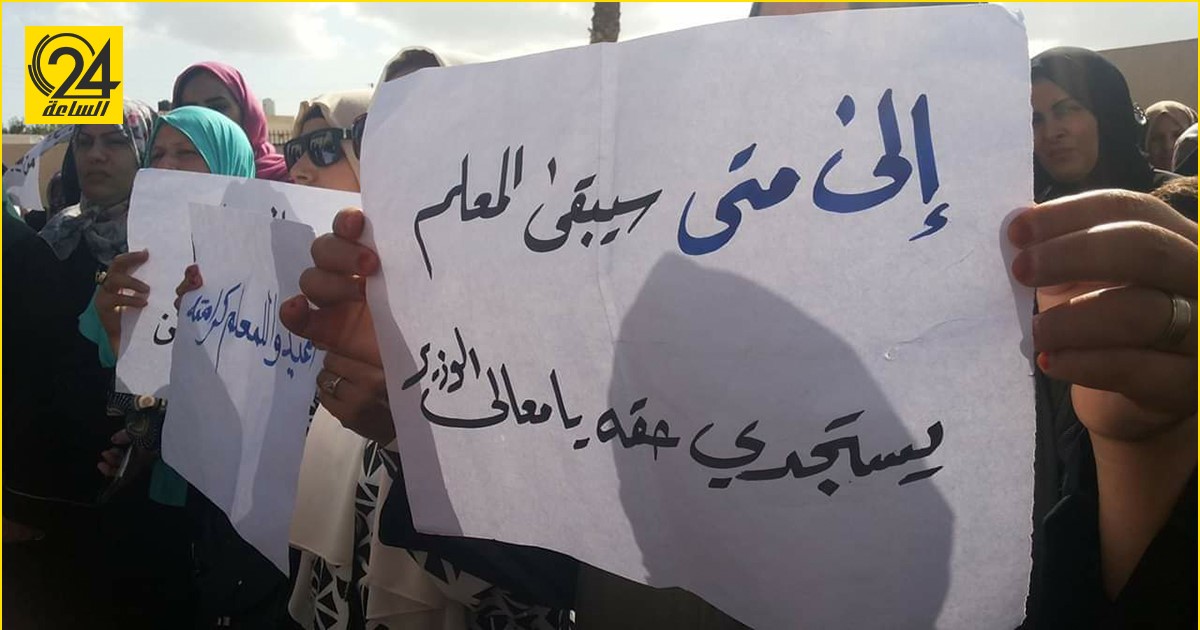 24
الساعة
إلى متى سيبقى المعلم
يستجدي حقه يا معالي الوزير
اعيدوا للمعلم كرامته